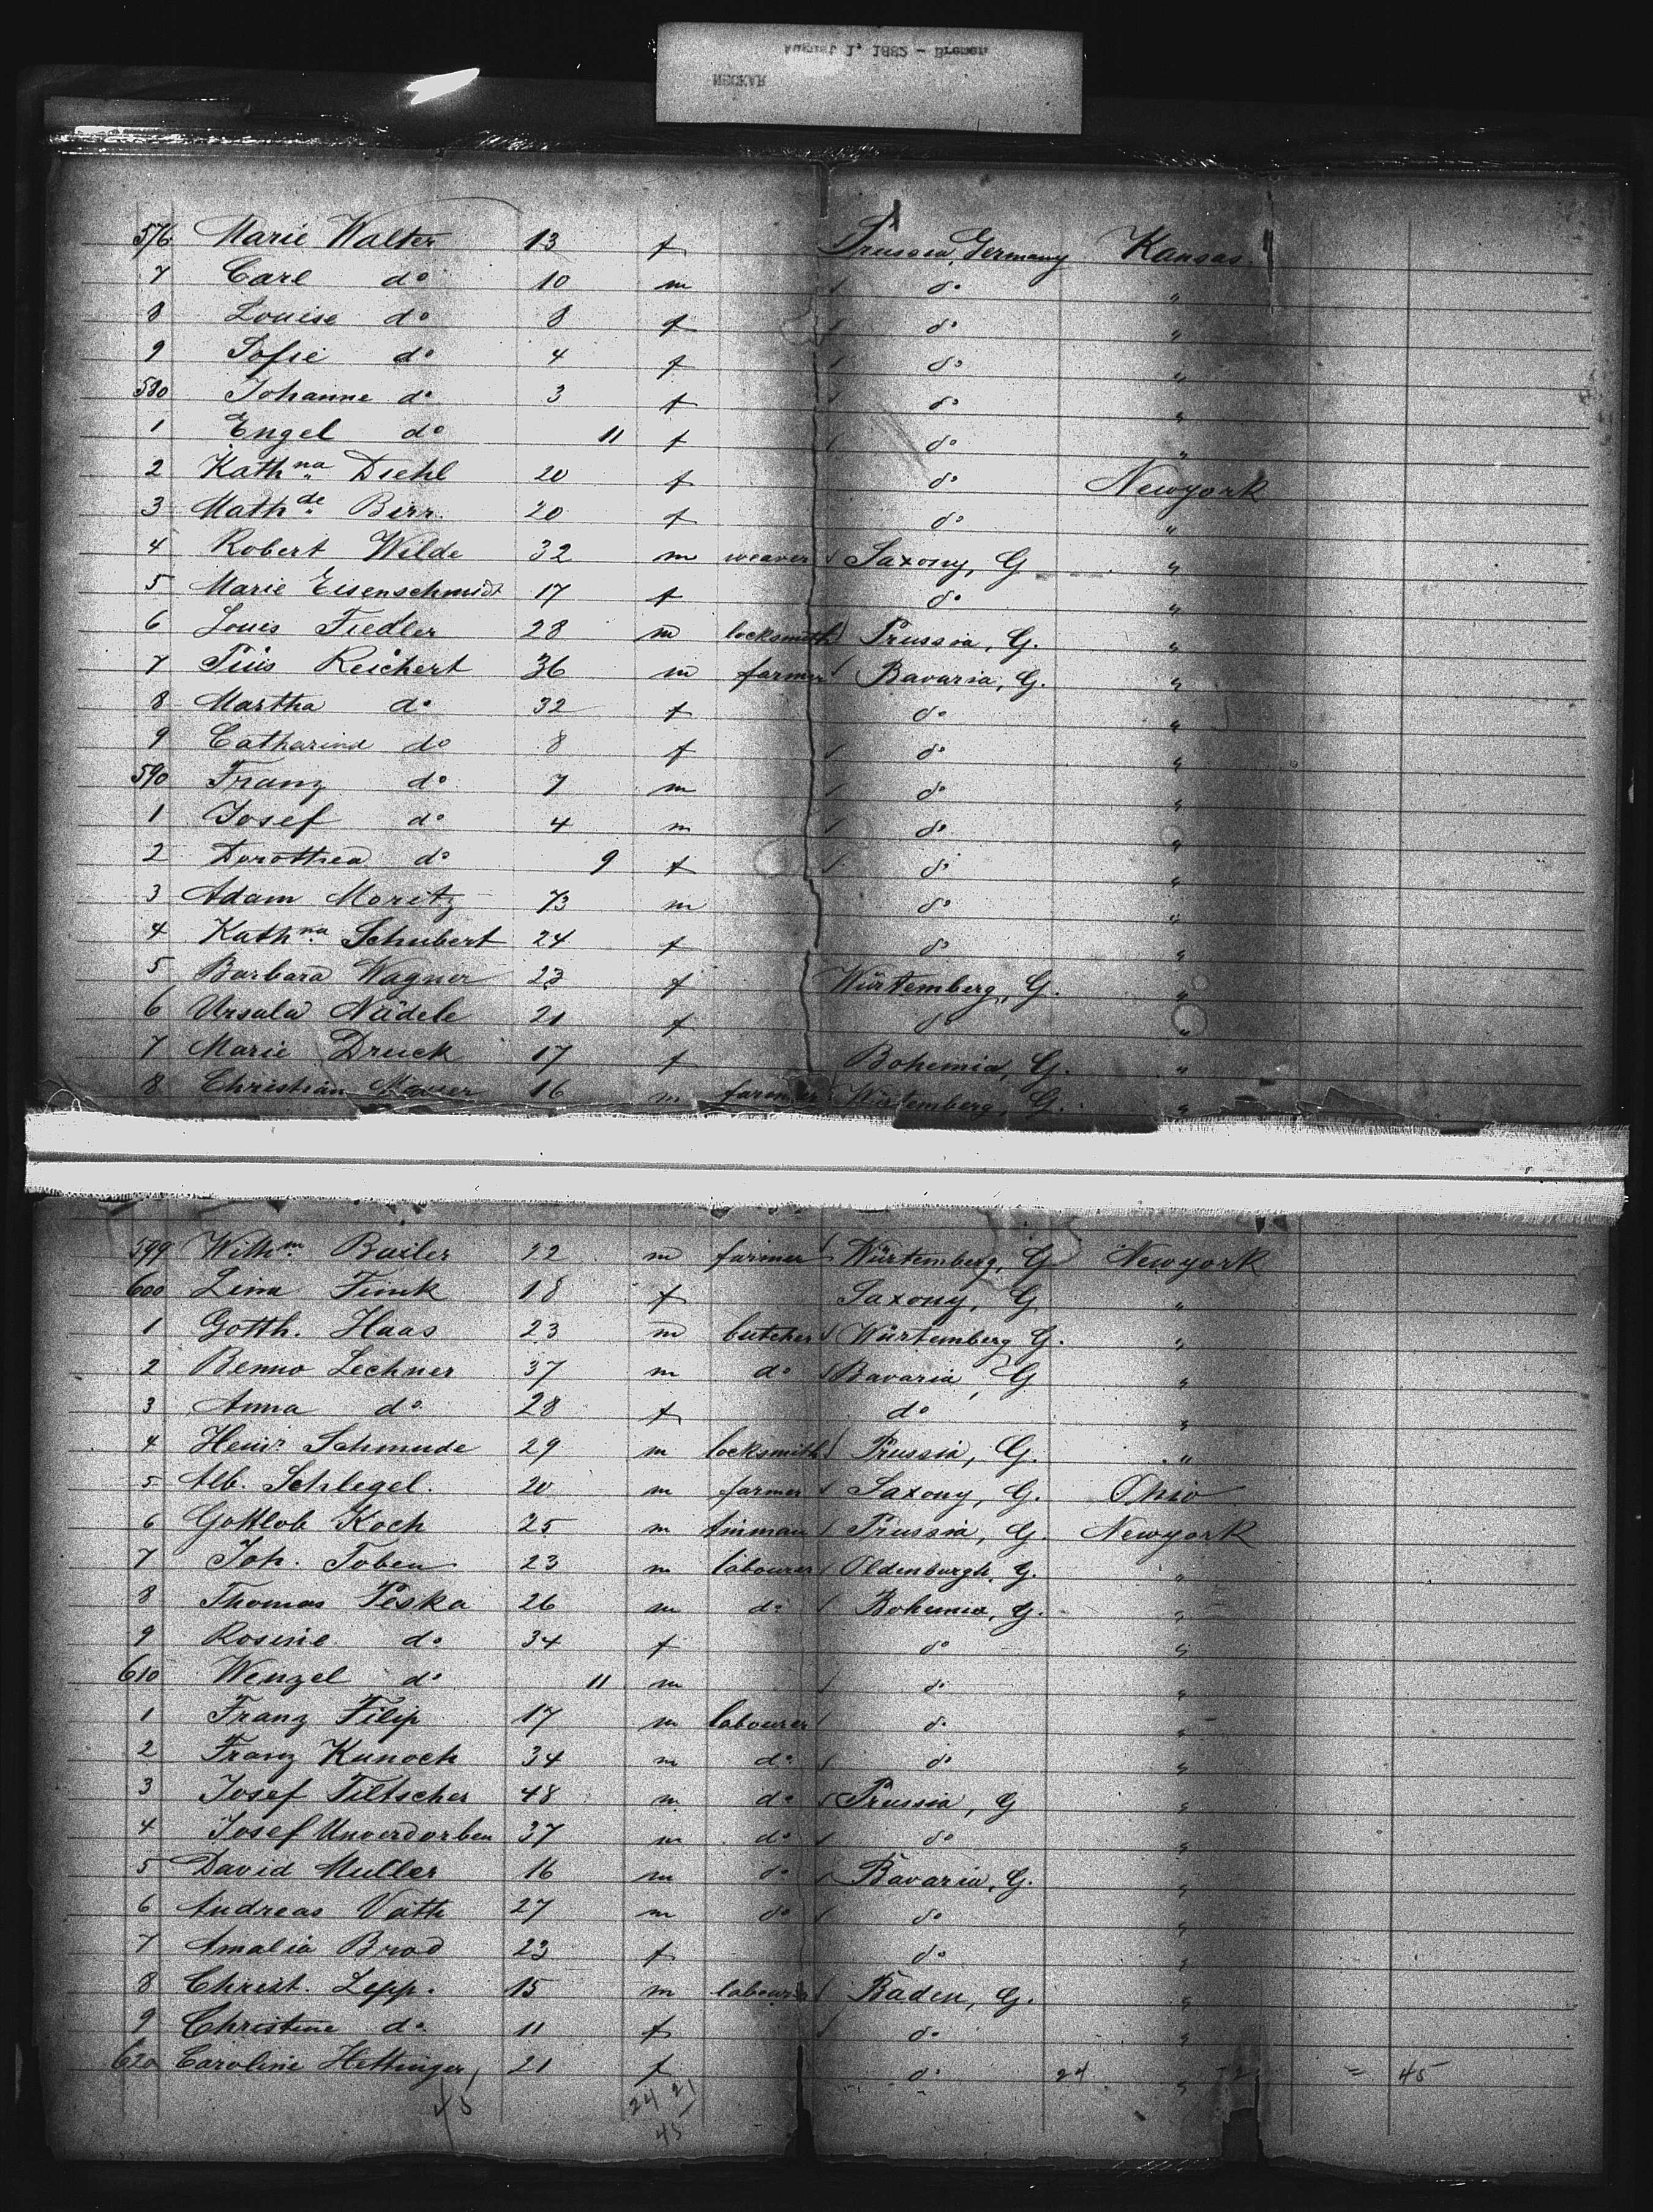 August 1, 1882 - Bremen
NECKAR
576 Marie Walter 13 f Prussia, Germany Kansas
7 Carl do 10 m do "
8 Louise do 8 f do "
9 Sofie do 4 f do "
580 Johanne do 3 f do "
1 Engel do 11 f do "
2 Kathna Diehl 20 f do Newyork
3 Mathde Birr 20 f do "
4 Robert Wilde 32 m weaver Saxony, G "
5 Marie Eisenschmidt 17 f do "
6 Louis Fiedler 28 m locksmith Prussia, G. "
7 Pius Reichert 36 m farmer Bavaria, G. "
8 Martha do 32 f do "
9 Catharina do 8 f do "
590 Franz do 7 m do "
1 Josef do 4 m do "
2 Dorothea do 9 f do "
3 Adam Moritz 73 m do "
4 Kathna Schubert 24 f do "
5 Barbara Wagner 23 f Würtemberg, G. "
6 Ursula Nädele 21 f do "
7 Marie Druck 17 f Bohemia, G. "
8 Christian 16 m farmer Würtemberg, G. "
599 Wilhm Bailer 22 m farmer Würtemberg, G Newyork
600 Lina Fink 18 f Saxony, G "
1 Gotth. Haas 23 m butcher Würtemberg G. "
2 Benno Lechner 37 m do Bavaria, G "
3 Anna do 28 f do "
4 Heinr Schmude 29 m locksmith Prussia, G. "
5 Alb. Schlegel. 20 m farmer Saxony, G. Ohio
6 Gottlob Koch 25 m tinman Prussia, G. Newyork
7 Joh. Toben 23 m labourer Oldenburgh, G. "
8 Thomas Peska 26 m do Bohemia, G. "
9 Rosine do 34 f do "
610 Wenzel do 11 m do "
1 Franz Filip 17 m labourer do "
2 Franz Kunoch 34 m do do "
3 Josef Tiltscher 48 m do Prussia, G "
4 Josef Unverdorben 37 m do do "
5 David Muller 16 m do Bavaria, G. "
6 Andreas Vath 27 m do do "
7 Amalia Brod 23 f do "
8 Christ. Lepp. 15 m labourer Baden, G. "
9 Christine do 11 f do "
620 Caroline Hettinger, 21 f do 24 " 21 = 45
45 24 21
45